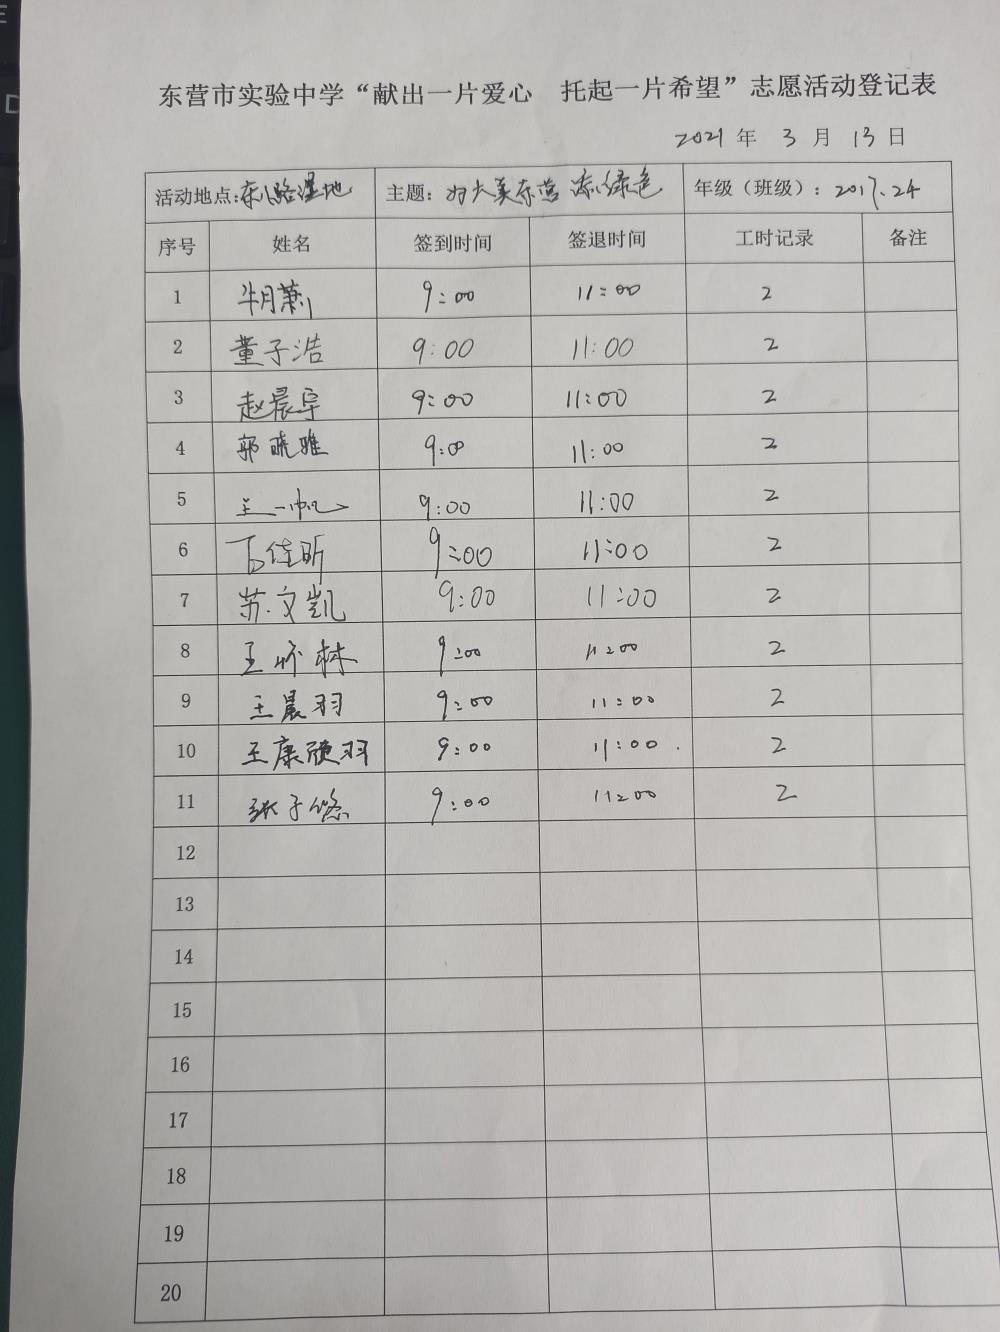 东营市实验中学“献出一片爱心 托起一片希望”志愿活动登记表
2021 年 3 月 13 日
活动地点:东八路湿地 主题: 为大美东营添绿色 年级（班级）: 2017.24
序号 姓名 签到时间 签退时间 工时记录 备注
1 9:00 11:00 2
2 董子浩 9:00 11:00 2
3 赵晨宇 9:00 11:00 2
4 郭晓雅 9:00 11:00 2
5 王一帆 9:00 11:00 2
6 佳昕 9:00 11:00 2
7 苏文凯 9:00 11:00 2
8 王怀林 9:00 11:00 2
9 王晨羽 9:00 11:00 2
10 王康 羽 9:00 11:00 2
11 张子悠 9:00 11:00 2
12
13
14
15
16
17
18
19
20